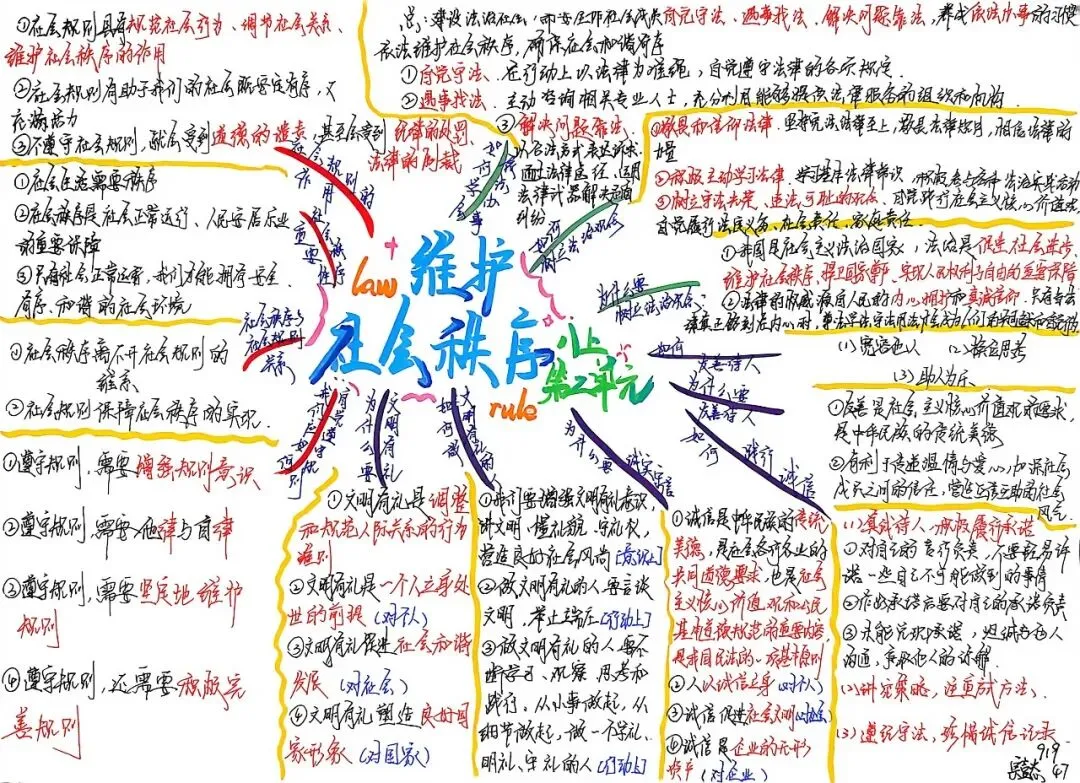 ①社会规则具有规范社会行为、调节社会关系、
维护社会秩序的作用
②社会规则有助于我们的社会既安定有序,又
充满活力
③不遵守社会规则,就会受到道德的谴责,甚至会受到法律的处罚
法律的制裁
①社会正常需要秩序
②社会秩序是社会正常运行、人民安居乐业
的重要保障
③只有社会正常运行,我们才能拥有安全、
有序、和谐的社会环境
①社会秩序离不开社会规则的
维系
②社会规则保障社会秩序的实现.
①遵守规则,需要增强规则意识
②遵守规则,需要他律与自律
③遵守规则,需要坚定地维护
规则
④遵守规则,还需要积极完
善规则
总:建设法治社会,需要全体社会成员自觉守法、遇事找法、解决问题靠法,养成依法办事的习惯
依法维护社会秩序,确保社会和谐有序
①自觉守法.在行动上以法律为准绳,自觉遵守法律的各项规定.
②遇事找法.主动咨询相关专业人士,充分利用能够提供法律服务的组织和机构
③解决问题靠法.
以合法方式表达诉求
通过法律途径、运用
法律武器解决矛盾
纠纷
①敬畏和信仰法律.坚持宪法法律至上,敬畏法律权威,相信法律的
力量
②积极主动学习法律.
③树立守法光荣、违法可耻的观念.自觉践行社会主义核心价值观,
自觉履行法定义务、社会责任、家庭责任
①我国是社会主义法治国家,法治是促进社会进步、
维护社会秩序、捍卫国家尊严、实现人民权利与自由的重要保障
②法律的权威源自人民的内心拥护和真诚信仰.
law
维护
社会秩序
rule
八上
第二单元
社会规则的
作用
社会秩序
重要性
社会秩序与
社会规则
关系
我们应如何
自觉遵守规则
为什么要
文明有礼
如何做
文明有礼的人
为什么要
诚实守信
如何
践行
诚信
为什么要
友善待人
如何
友善待人
为什么要
树立法治观念
如何
树立法治观念
如何依法办事
(1)宽容他人 (2)换位思考
(3)助人为乐
①友善是社会主义核心价值观的要求,
是中华民族的传统美德
②有利于传递温情与爱心,加深社会
成员之间的信任,营造互信互助的社会
风气.
(1)真诚待人,积极履行承诺
①对自己的言行负责,不要轻易许
诺一些自己不可能做到的事情
②作出承诺后要对自己的承诺负责
③未能兑现承诺,坦诚与他人
沟通,争取他人的谅解.
(2)讲究策略,注重方式方法.
(3)遵纪守法,珍惜诚信记录
①文明有礼是调整
和规范人际关系的行为
准则
②文明有礼是一个人立身处
世的前提(对个人)
③文明有礼促进社会和谐
发展(对社会)
④文明有礼塑造良好国
家形象(对国家)
①我们要增强文明有礼意识,
讲文明、懂礼貌、守礼仪,
营造良好社会风尚[意识上]
②做文明有礼的人要言谈
文明,举止端庄[行动上]
③做文明有礼的人要不
断学习、观察、思考和
践行,从小事做起,从
细节做起,做一个学礼、
明礼、守礼的人[行动上]
①诚信是中华民族的传统
美德,是社会各行各业的
共同道德要求,也是社会
主义核心价值观和公民
基本道德规范的重要内容,
是我国民法的一项基本原则
②人以诚信立身(对个人)
③诚信促进社会文明(对社会)
④诚信是企业的无形
资产(对企业)
919
47